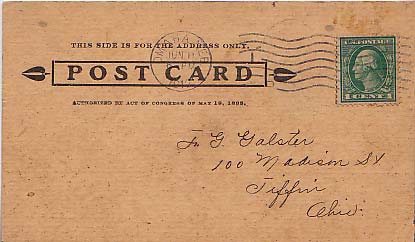 THIS SIDE IS FOR THE ADDRESS ONLY.
POST CARD
AUTHORIZED BY ACT OF CONGRESS OF MAY 19, 1898.
OMAHA
JUN
U.S. POSTAGE
1 CENT 1
F. G. Galster
100 Madison St
Tiffin
Ohio.